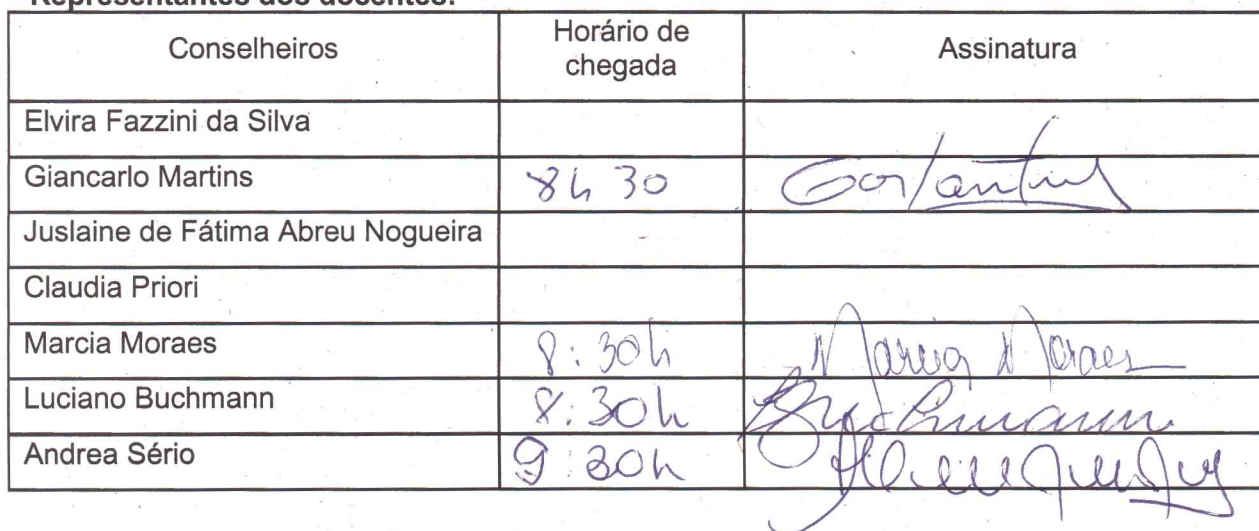 Representantes dos docentes:
Conselheiros Horário de chegada Assinatura
Elvira Fazzini da Silva
Giancarlo Martins 8h 30
Juslaine de Fátima Abreu Nogueira
Claudia Priori
Marcia Moraes 8:30h Marcia Moraes
Luciano Buchmann 8:30h Buchmann
Andrea Sério 9:30h